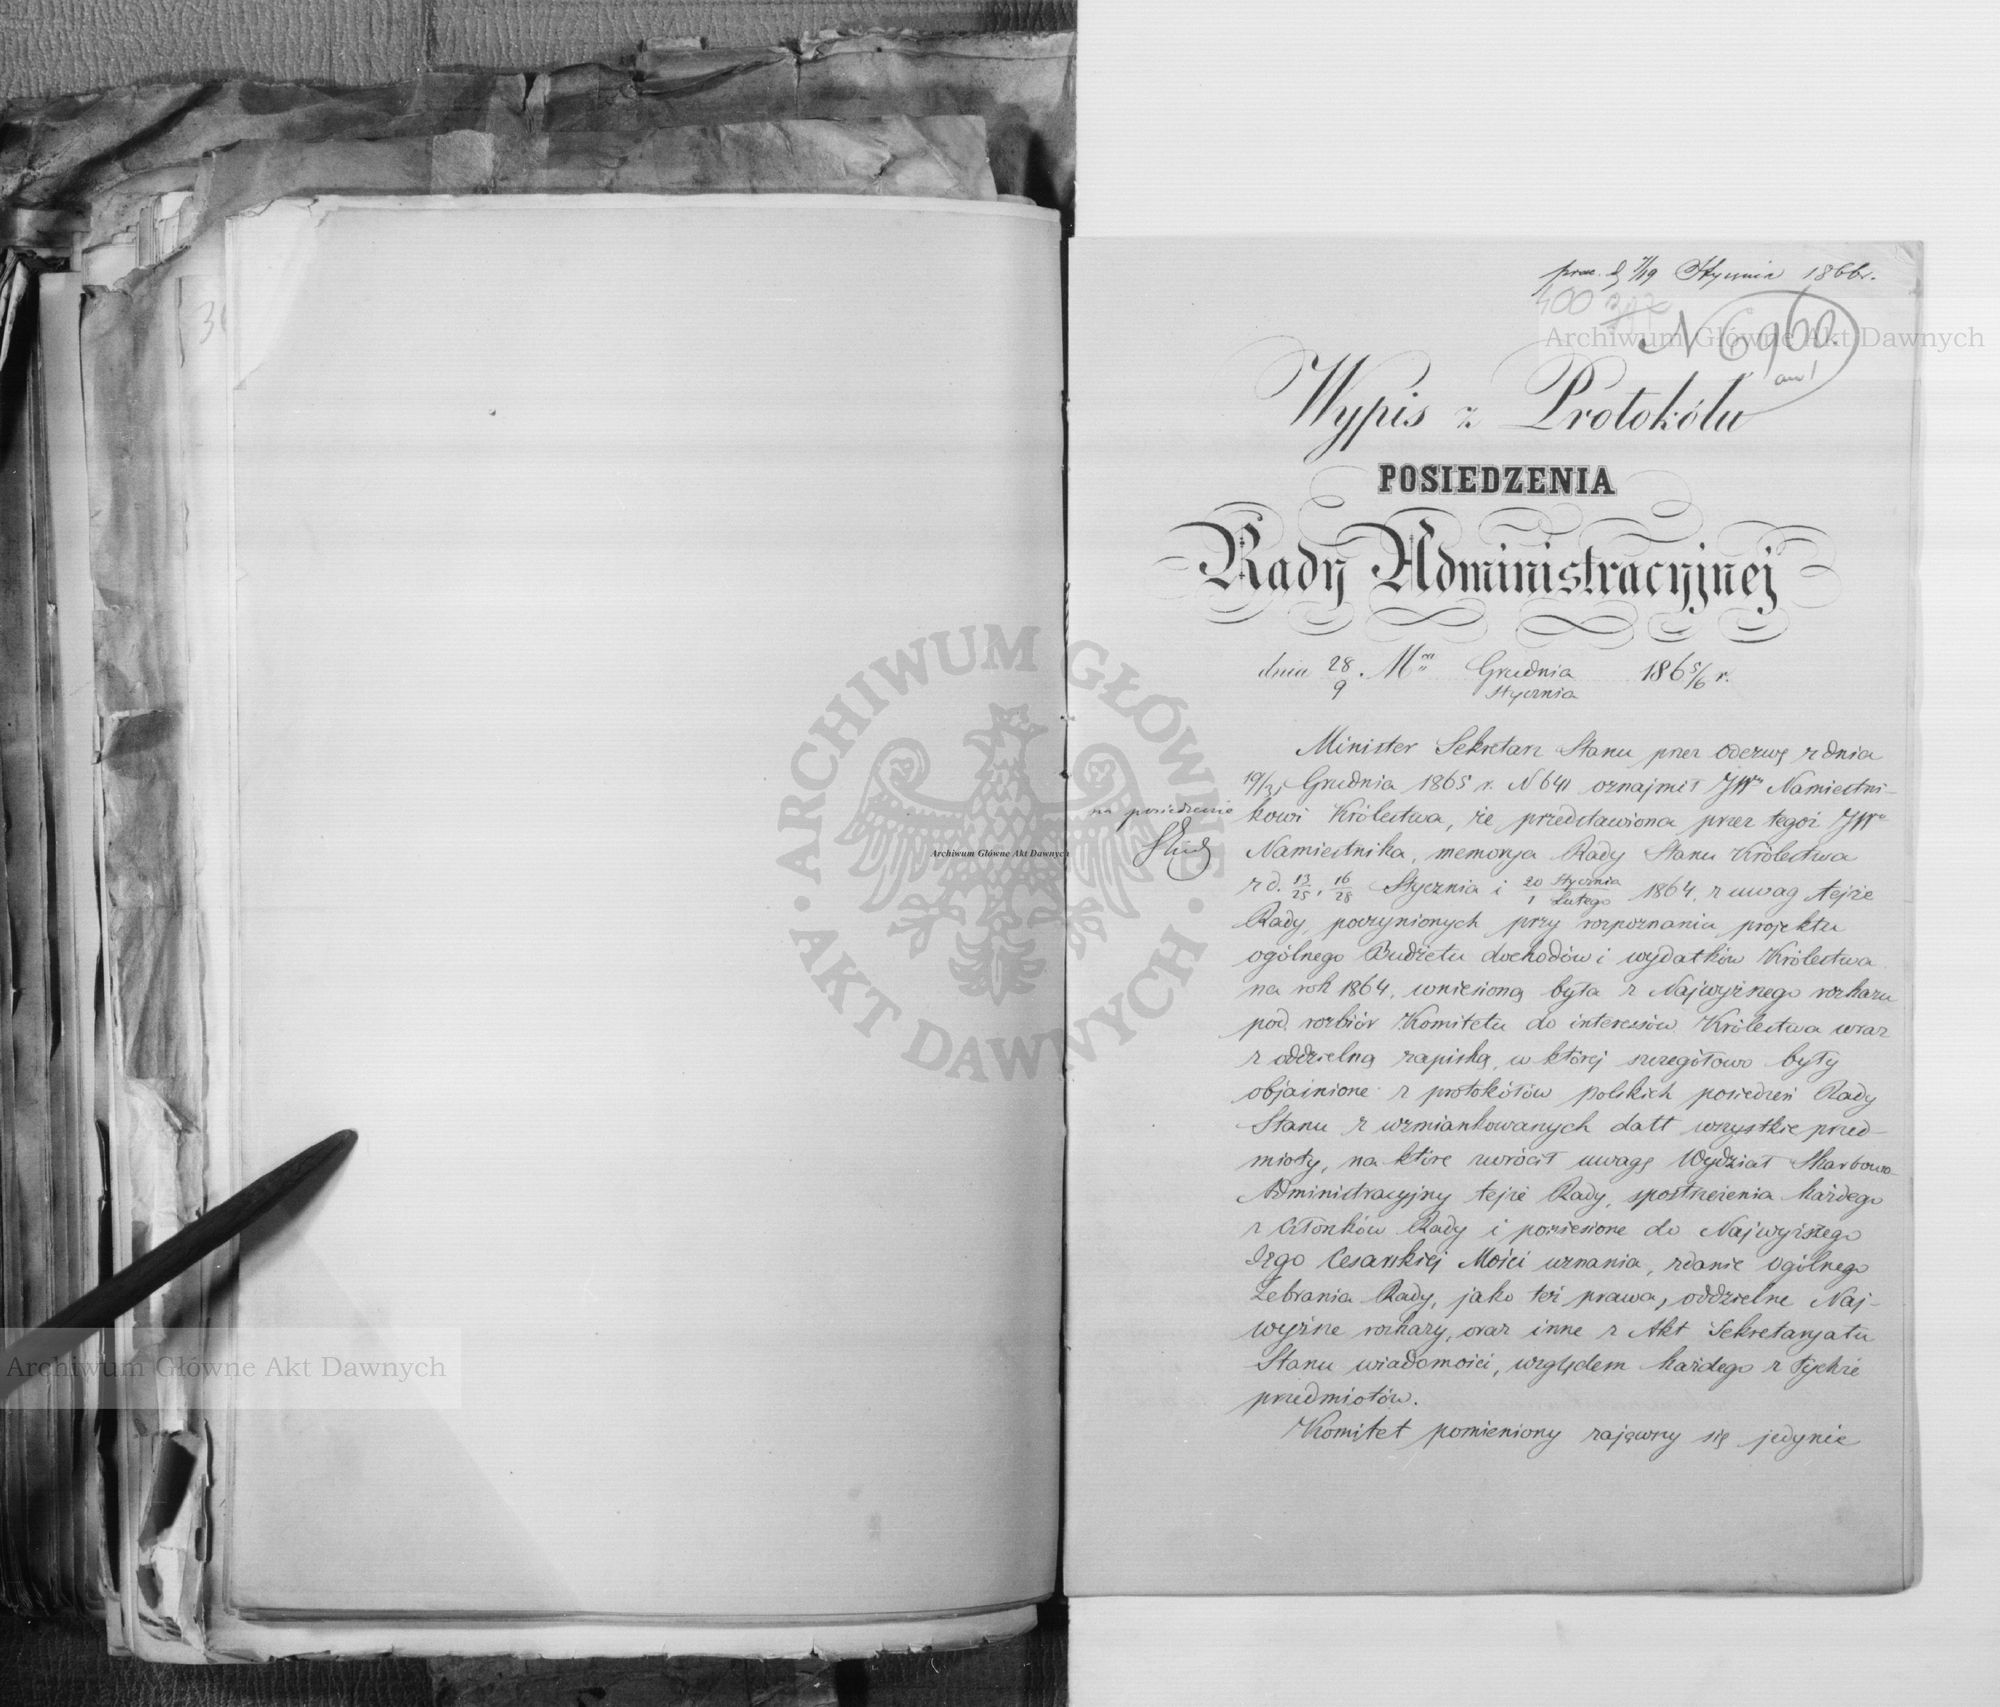 prae. d 7/19 Stycznia 1866 r.
400
N 6960.
Wypis z Protokółu
POSIEDZENIA
Rady Administracyjnej
dnia 28/9 Mca Grudnia/Stycznia 186 5/6 r.
Minister Sekretarz Stanu przez odezwę z dnia
19/31 Grudnia 1865 r. N 641 oznajmił JWu Namiestni-
na posiedzenie
kowi Królestwa, że przedstawiona przez tegoż JWo
Namiestnika, memorya Rady Stanu Królestwa
z d. 13/25, 16/28 Stycznia i 20 Stycznia/1 Lutego 1864, z uwag tejże
Rady, poczynionych przy rozpoznaniu projektu
ogólnego Budżetu dochodów i wydatków Królestwa
na rok 1864, wniesioną była z Najwyższego rozkazu
pod rozbiór Komitetu do interessów Królestwa wraz
z oddzielną zapiską, w której szczegółowo były
objaśnione z protokółów polskich posiedzeń Rady
Stanu z wzmiankowanych datt wszystkie przed-
mioty, na które zwrócił uwagę Wydział Skarbowo-
Administracyjny tejże Rady, spostrzeżenia każdego
z Członków Rady i poniesione do Najwyższego
Jego Cesarskiej Mości uznania, zdanie ogólnego
Zebrania Rady, jako też prawa, oddzielne Naj-
wyższe rozkazy, oraz inne z Akt Sekretaryatu
Stanu wiadomości, względem każdego z tychże
przedmiotów.
Komitet pomieniony zająwszy się jedynie
Archiwum Główne Akt Dawnych
ARCHIWUM GŁÓWNE AKT DAWNYCH
Archiwum Główne Akt Dawnych
Archiwum Główne Akt Dawnych